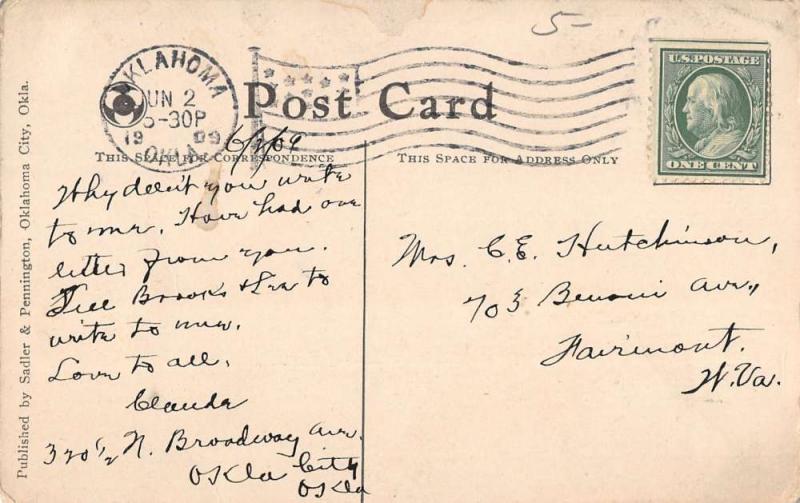 5-
OKLAHOMA
JUN 2
5-30P
1909
OKLA.
U.S. POSTAGE
ONE CENT
Post Card
6/2/09
THIS SPACE FOR CORRESPONDENCE
THIS SPACE FOR ADDRESS ONLY
Why don't you write
to me. Have had one
letter from you.
Tell Brooks & Ira to
write to me.
Love to all.
Claude
320 1/2 N. Broadway Ave.
Okla City
Okla
Mrs. C. E. Hutchinson,
703 Benoni Ave.,
Fairmont.
W. Va.
Published by Sadler & Pennington, Oklahoma City, Okla.